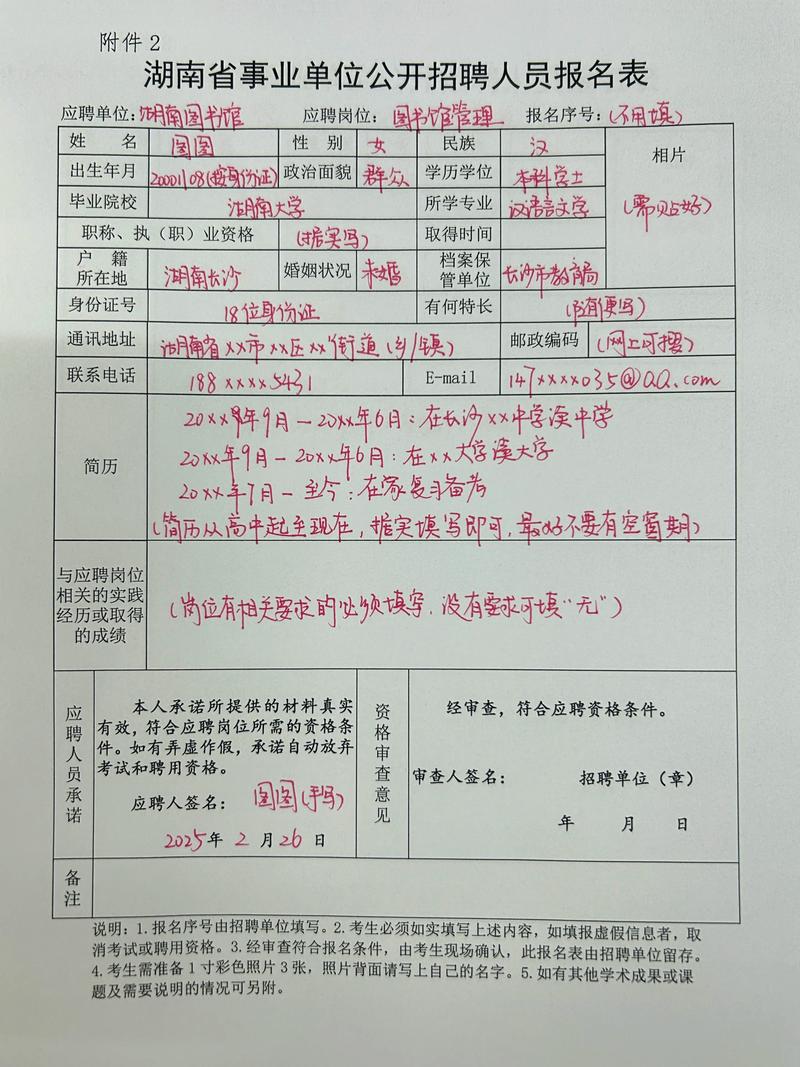 附件2
湖南省事业单位公开招聘人员报名表
应聘单位:湖南图书馆 应聘岗位:图书馆管理 报名序号:(不用填)
姓 名 图图 性 别 女 民族 汉 相片
出生年月 20001108(按身份证) 政治面貌 群众 学历学位 本科学士
(需贴好)
毕业院校 湖南大学 所学专业 汉语言文学
职称、执(职)业资格 (据实写) 取得时间
户 籍 所在地 湖南长沙 婚姻状况 未婚 档案保管单位 长沙市教育局
身份证号 18位身份证 有何特长 (没有便写)
通讯地址 湖南省××市××区××街道(乡/镇) 邮政编码 (网上可搜)
联系电话 188××××5431 E-mail 147××××035@QQ.com
简历
20××年9月—20××年6月:在长沙××中学读中学
20××年9月—20××年6月:在××大学读大学
20××年7月—至今:在家复习备考
(简历从高中起至现在,据实填写即可,最好不要有空窗期)
与应聘岗位
相关的实践
经历或取得
的成绩
(岗位有相关要求的必须填写,没有要求可填“无”)
应聘人员承诺
本人承诺所提供的材料真实
有效,符合应聘岗位所需的资格条
件。如有弄虚作假,承诺自动放弃
考试和聘用资格。
应聘人签名: 图图(手写)
2025年 2 月 26 日
资格审查意见
经审查,符合应聘资格条件。
审查人签名: 招聘单位(章)
年 月 日
备注
说明:1.报名序号由招聘单位填写。2.考生必须如实填写上述内容,如填报虚假信息者,取
消考试或聘用资格。3.经审查符合报名条件,由考生现场确认,此报名表由招聘单位留存。
4.考生需准备1寸彩色照片3张,照片背面请写上自己的名字。5.如有其他学术成果或课
题及需要说明的情况可另附。